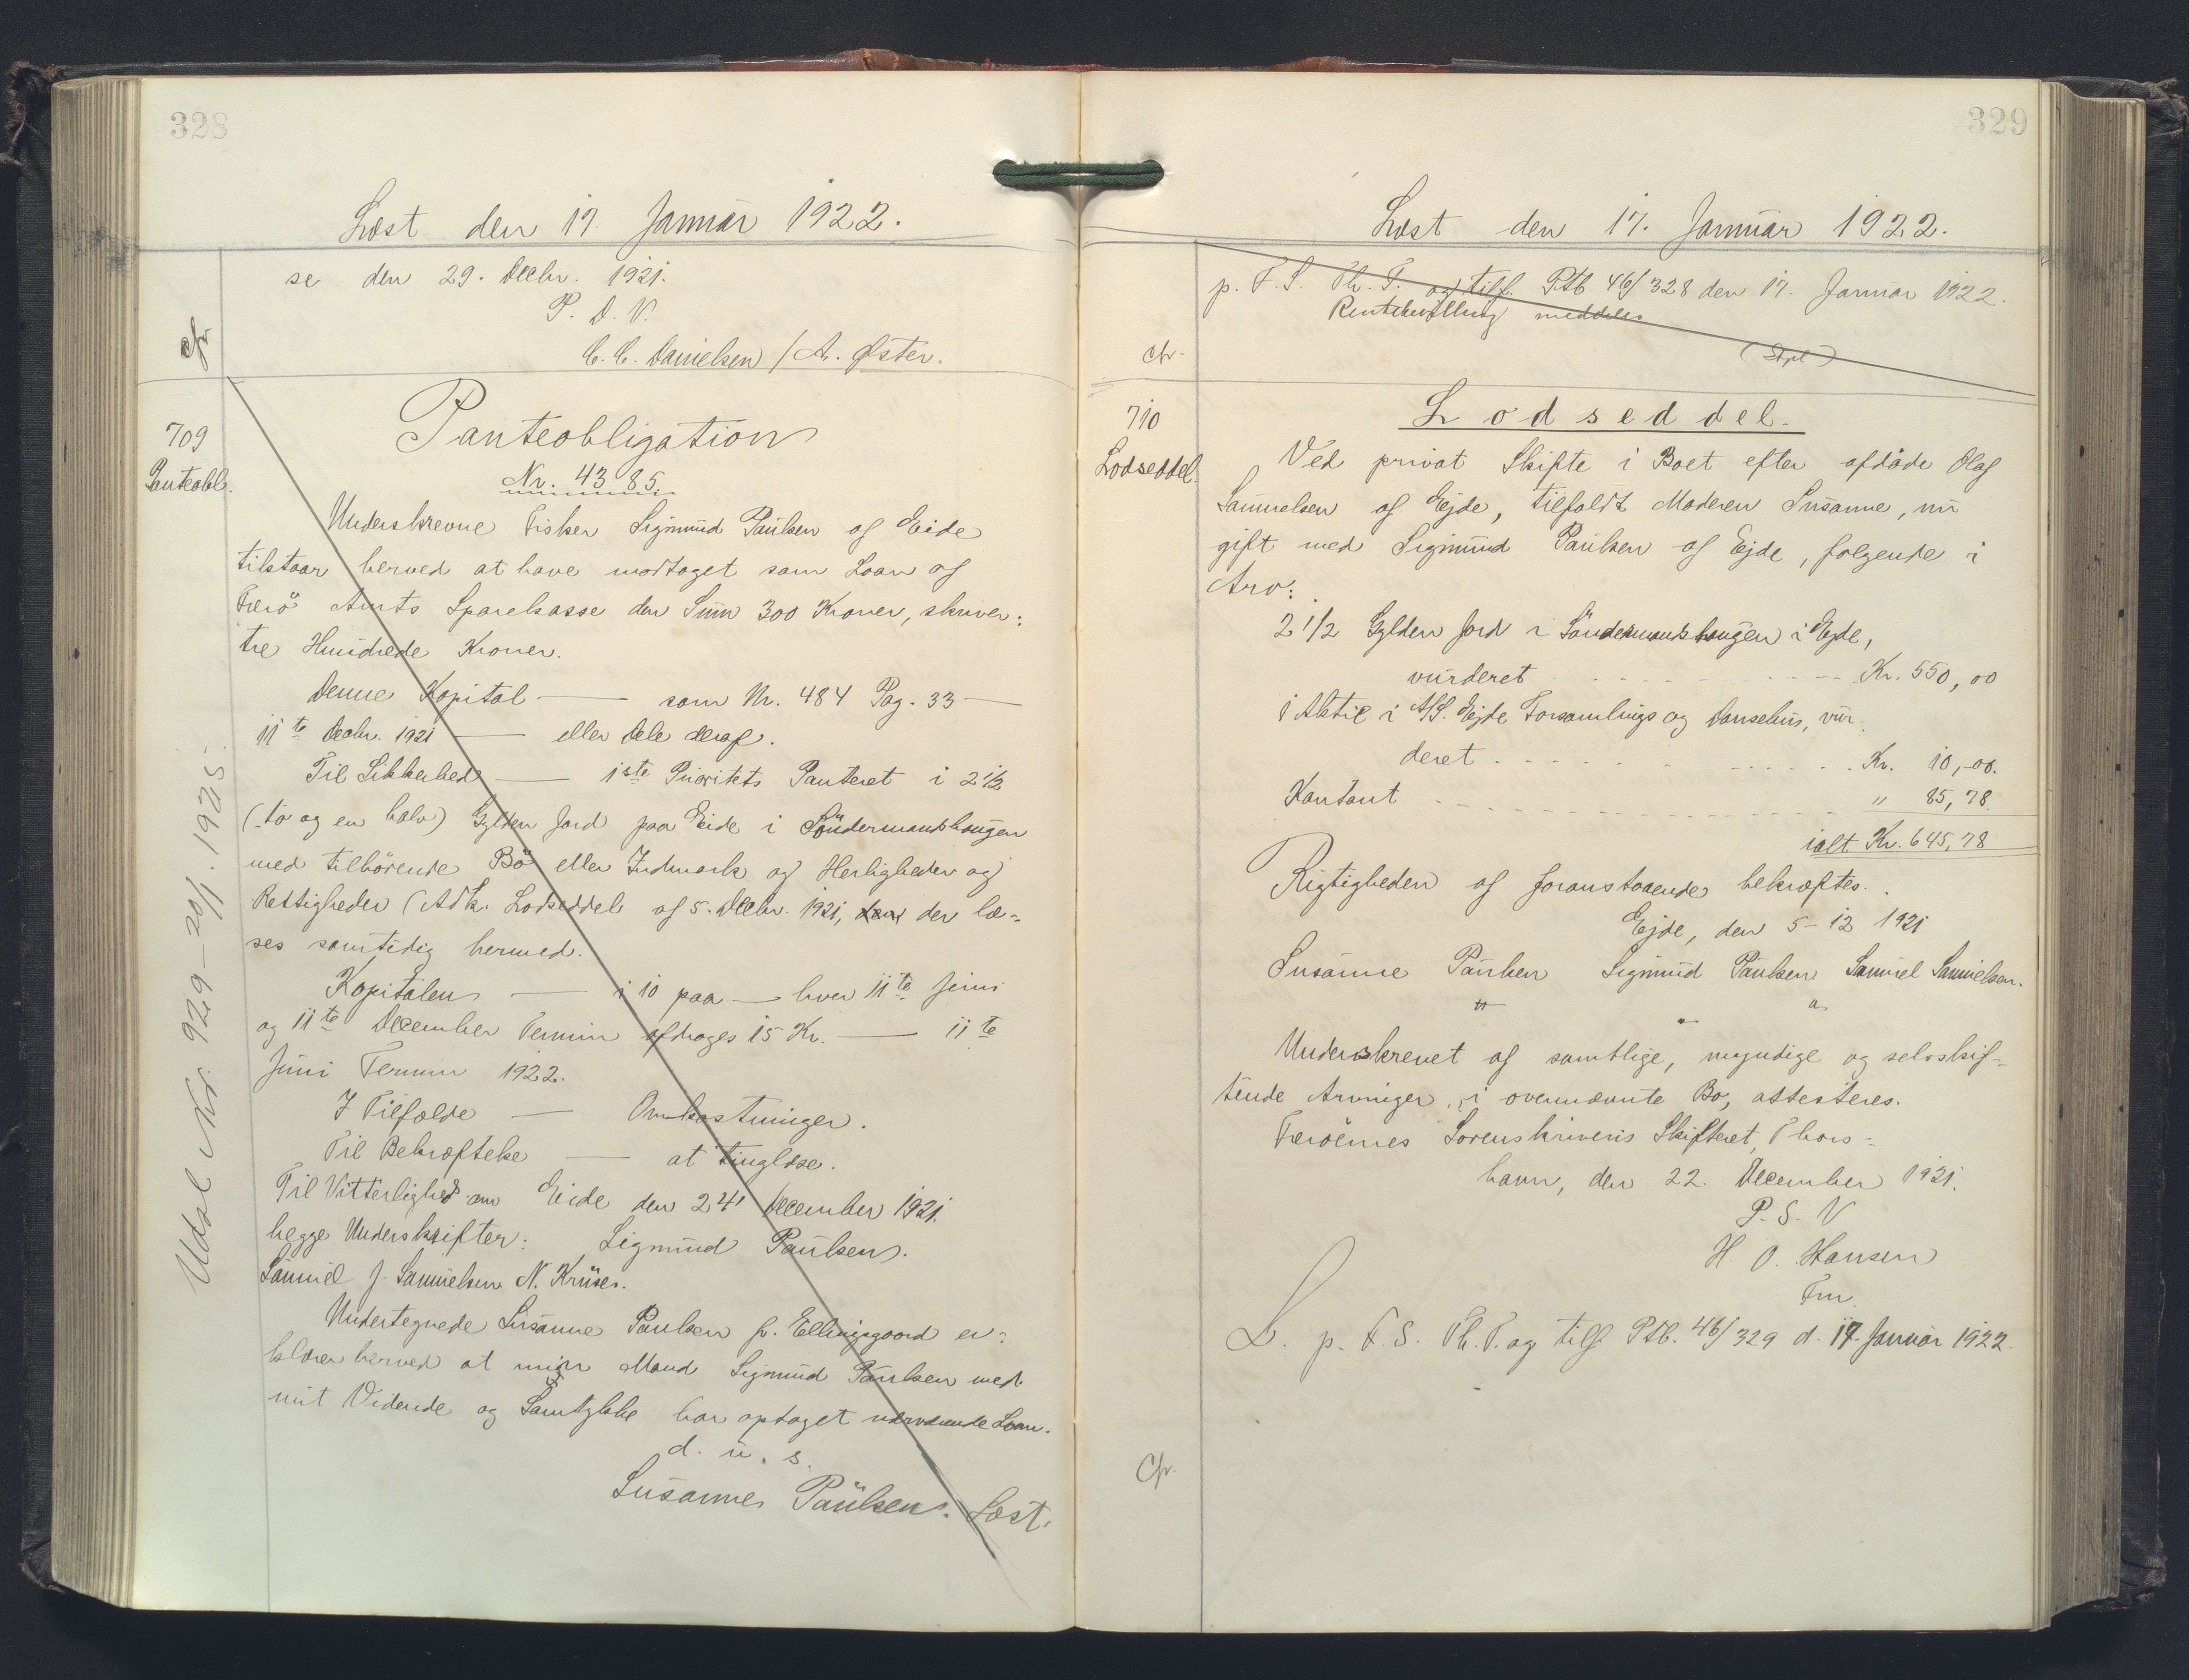 328
Læst den 17. Januar 1922.
se den 29. Decbr. 1921.
P. D. V.
C. C. Danielsen / A. Øster.
Cfr
709
Panteobl.
Panteobligation
Nr. 4385.
Underskrevne Fisker Sigmund Paulsen af Eide
tilstaar herved at have modtaget som Laan af
Færö Amts Sparekasse den Sum 300 Kroner, skriver:
tre Hundrede Kroner.
Denne Kapital — som Nr. 484 Pag. 33 —
11te Decbr. 1921 — eller Dele deraf.
Til Sikkerhed — 1ste Prioritets Panteret i 2 1/2
(to og en halv) Gylden Jord paa Eide i Söndermandshaugen
med tilhörende Bö eller Indmark og Herligheder og
Rettigheder (Adk. Lodseddel af 5. Decbr. 1921, den der læ-
ses samtidig hermed.
Kapitalen — i 10 paa — hver 11te Juni
og 11te December Termin afdrages 15 Kr. — 11te
Juni Termin 1922.
I Tilfælde — Omkostninger.
Til Bekræftelse — at tinglæse.
Til Vitterlighed om Eide den 24 December 1921.
begge Underskrifter: Sigmund Paulsen.
Samuel J. Samuelsen N. Krüse.
Undertegnede Susanne Paulsen f. Ellingsgaard er-
klærer herved at min Mand Sigmund Paulsen med
mit Vidende og Samtykke har optaget nærværende Laan.
d. u. s.
Susanne Paulsen. Læst.
Udsl Nr. 929 - 20/1. 1925.
329
Læst den 17. Januar 1922.
p. F. S. Th. T. og tilf. Ptb. 46/328 den 17. Januar 1922.
Rentebevilling meddeles
(Stpl)
Cfr.
710
Lodseddel.
Lodseddel.
Ved privat Skifte i Boet efter afdöde Olaf
Samuelsen af Ejde, tilfaldt Moderen Susanne, nu
gift med Sigmund Paulsen af Ejde, følgende i
Arv:
2 1/2 Gylden Jord i Söndermandshaugen i Ejde,
vurderet Kr. 550,00
1 Aktie i A/S. Ejde Forsamlings og Dansehus, vur-
deret Kr. 10,00.
Kontant " 85,78
ialt Kr. 645,78
Rigtigheden af foranstaaende bekræftes.
Ejde, den 5-12 1921
Susanne Paulsen Sigmund Paulsen Samuel Samuelsen.
" " "
Underskrevet af samtlige, myndige og selvskif-
tende Arvinger i overnævnte Bo, attesteres.
Færöernes Sorenskriveris Skifteret, Thors-
havn, den 22. December 1921.
P. S. V
H. O. Hansen
Fm.
L. p. F. S. Th. T. og tilf Ptb. 46/329 d. 17. Januar 1922.
Cfr.